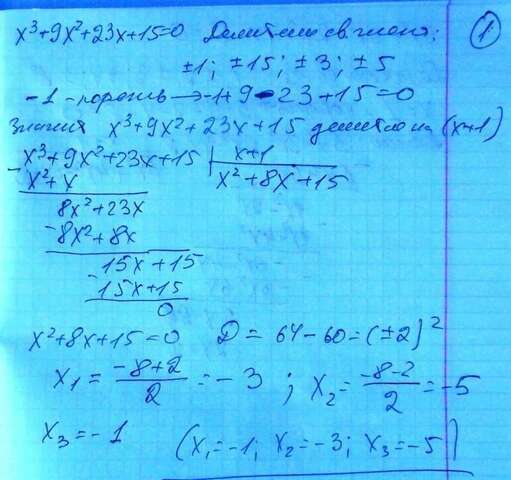 x³+9x²+23x+15=0 Делители св. члена: 1
±1; ±15; ±3; ±5
-1 - корень → -1+9-23+15=0
Значит x³+9x²+23x+15 делится на (x+1)
x³+9x²+23x+15 | x+1
- x²+x x²+8x+15
8x²+23x
- 8x²+8x
15x+15
- 15x+15
0
x²+8x+15=0 D = 64-60=(±2)²
x₁ = (-8+2)/2 = -3 ; x₂ = (-8-2)/2 = -5
x₃ = -1 (x₁=-1; x₂=-3; x₃=-5)